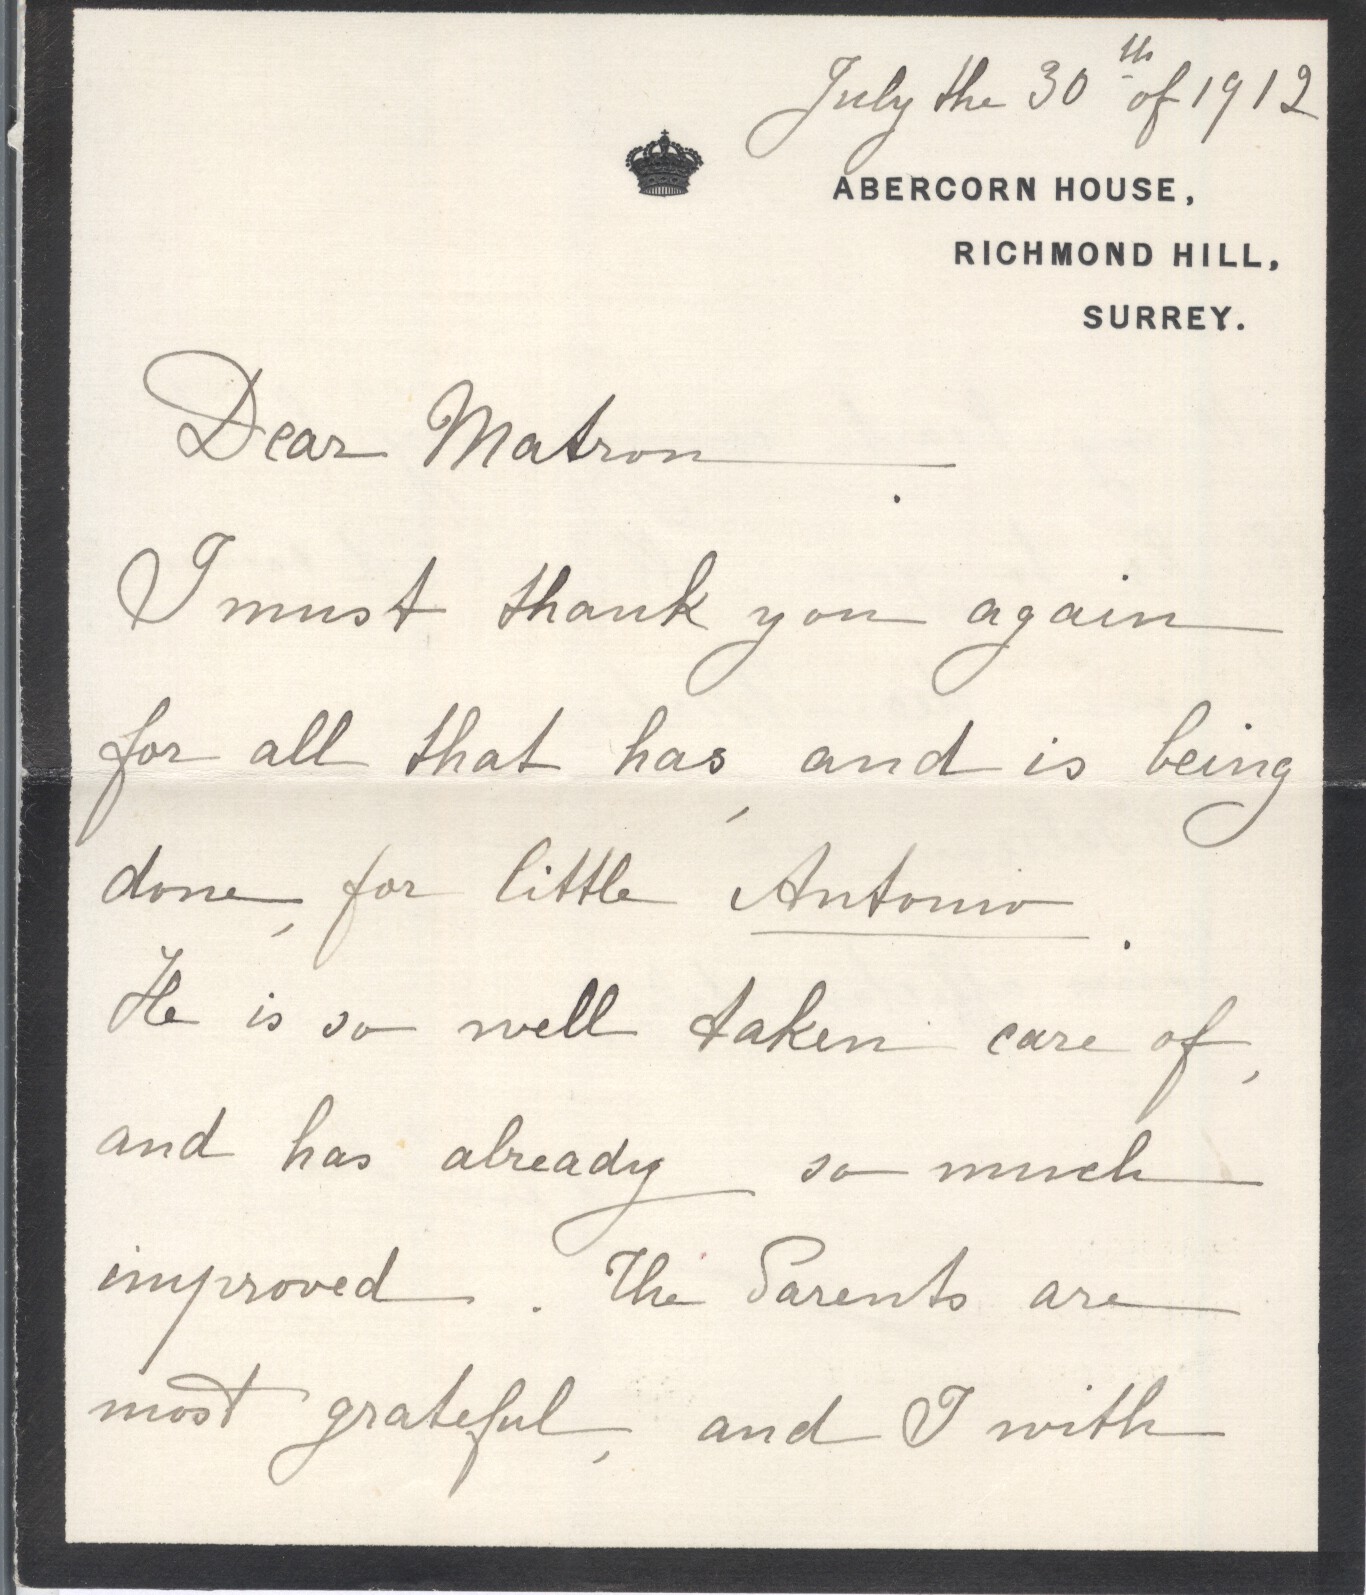 July the 30th of 1912
ABERCORN HOUSE,
RICHMOND HILL,
SURREY.
Dear Matron.
I must thank you again
for all that has, and is being
done, for little Antonio.
He is so well taken care of,
and has already so much
improved. The Parents are
most grateful, and I with